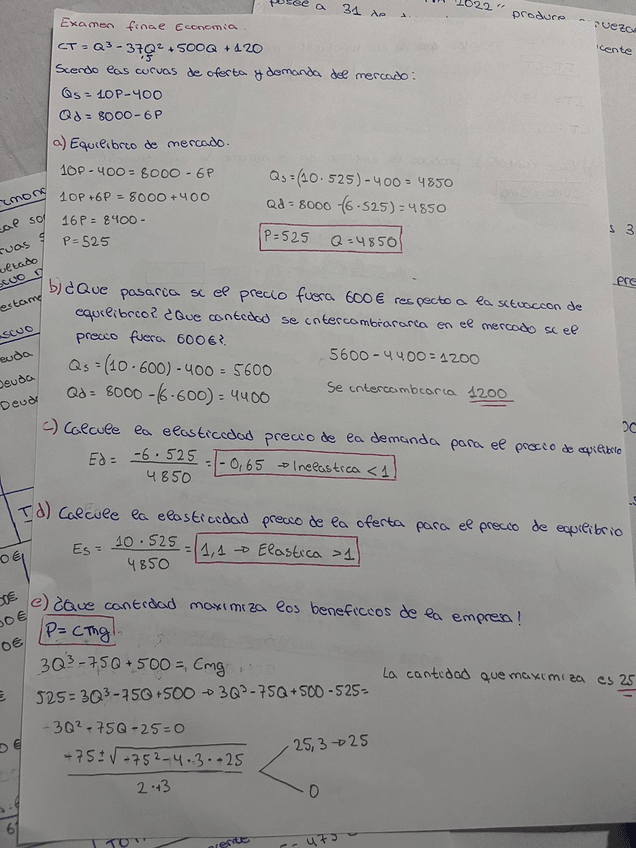 Examen final Economía.
CT = Q³ - 37Q² + 500Q + 120
,5
Siendo las curvas de oferta y demanda del mercado:
Qs = 10P - 400
Qd = 8000 - 6P
a) Equilibrio de mercado.
10P - 400 = 8000 - 6P
10P + 6P = 8000 + 400
16P = 8400 -
P = 525
Qs = (10 · 525) - 400 = 4850
Qd = 8000 - (6 · 525) = 4850
P = 525 Q = 4850
b) ¿Que pasaría si el precio fuera 600€ respecto a la situacion de
equilibrio? ¿Que cantidad se intercambiararia en el mercado si el
precio fuera 600€?.
Qs = (10 · 600) - 400 = 5600
Qd = 8000 - (6 · 600) = 4400
5600 - 4400 = 1200
Se intercambiaria 1200
c) Calcule la elasticidad precio de la demanda para el precio de equilibrio
Ed = -6 · 525 / 4850 = -0,65 → Inelastica < 1
d) Calcule la elasticidad precio de la oferta para el precio de equilibrio
Es = 10 · 525 / 4850 = 1,1 → Elastica > 1
e) ¿Que cantidad maximiza los beneficios de la empresa!
P = CMg
3Q³ - 75Q + 500 = Cmg
525 = 3Q³ - 75Q + 500 → 3Q³ - 75Q + 500 - 525 =
La cantidad que maximiza es 25
3Q² + 75Q - 25 = 0
+75 ± √+75² - 4 · 3 · +25 / 2 · +3
25,3 → 25
0
posee a 31 de
2022" produce